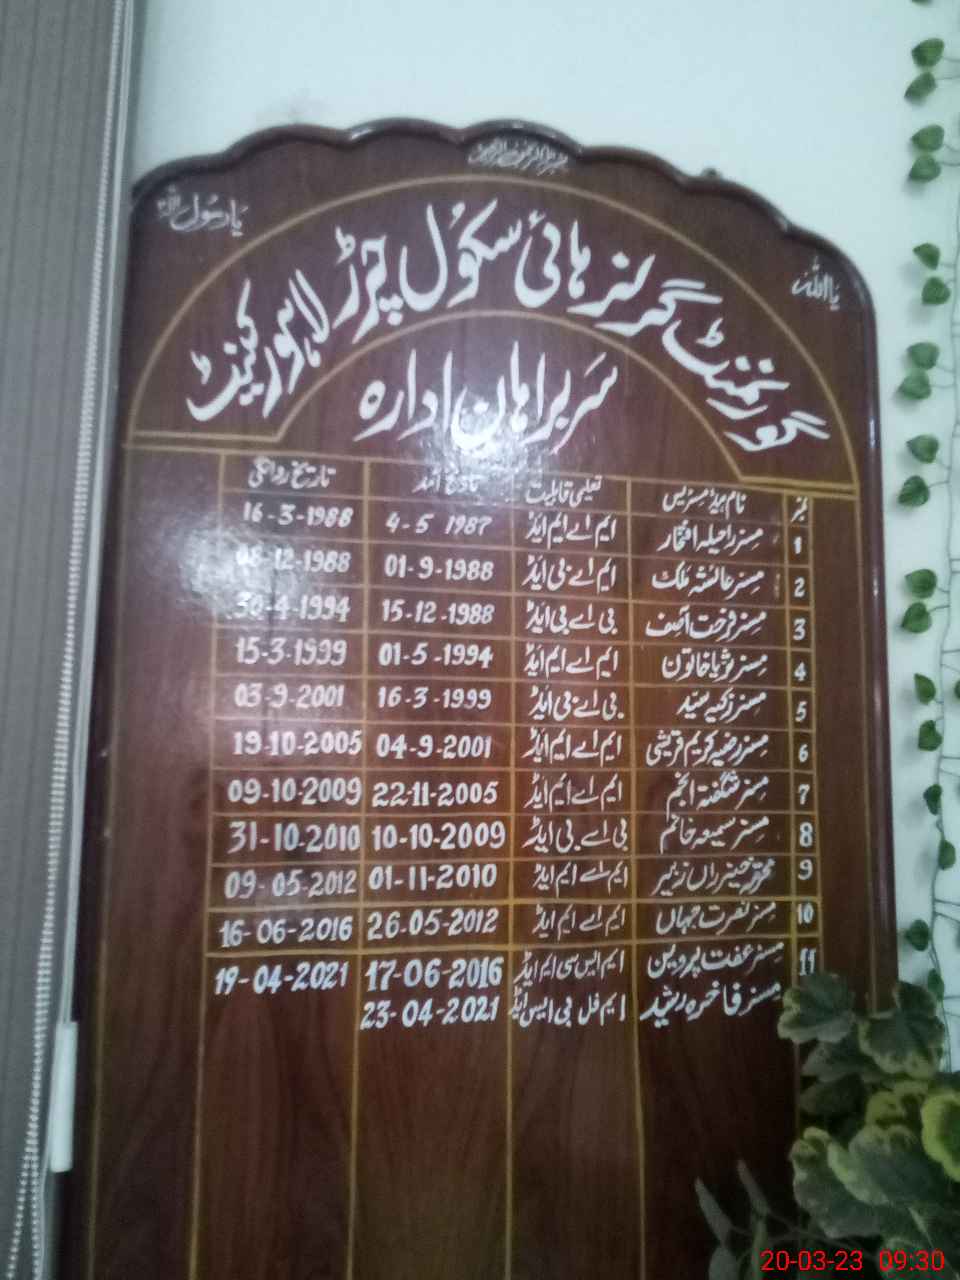 بسم اللہ الرحمن الرحیم
یا اللہ
یا رسول اللہ
گورنمنٹ گرلز ہائی سکول چرڑ لاہور کینٹ
سربراہان ادارہ
نمبر نام ہیڈ مسٹریس تعلیمی قابلیت تاریخ آمد تاریخ روانگی
1 مسز راحیلہ افتخار ایم اے ایم ایڈ 4-5 1987 16-3-1988
2 مسز عائشہ ملک ایم اے بی ایڈ 01-9-1988 08-12-1988
3 مسز فرحت آصف بی اے بی ایڈ 15-12-1988 30-4-1994
4 مسز ثریا خاتون ایم اے ایم ایڈ 01-5-1994 15-3-1999
5 مسز زکیہ سید بی اے بی ایڈ 16-3-1999 03-9-2001
6 مسز رضیہ کریم قریشی ایم اے ایم ایڈ 04-9-2001 19-10-2005
7 مسز شگفتہ انجم ایم اے ایم ایڈ 22-11-2005 09-10-2009
8 مسز سمیعہ خانم بی اے بی ایڈ 10-10-2009 31-10-2010
9 زبیر ایم اے ایم ایڈ 01-11-2010 09-05-2012
10 مسز نصرت جہاں ایم اے ایم ایڈ 26-05-2012 16-06-2016
11 مسز عفت پروین ایم ایس سی ایم ایڈ 17-06-2016 19-04-2021
مسز فاخرہ رشید ایم فل بی ایس ایڈ 23-04-2021
20-03-23 09:30